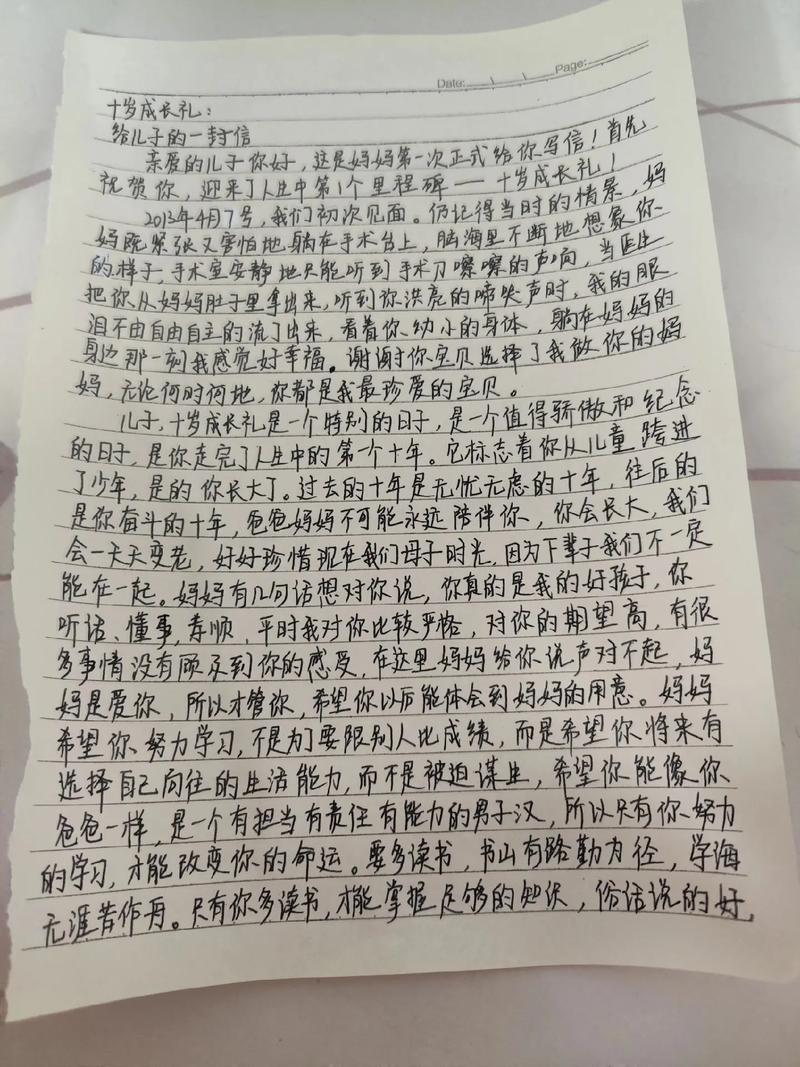 Date: Page:
十岁成长礼：
给儿子的一封信
亲爱的儿子你好，这是妈妈第一次正式给你写信！首先
祝贺你，迎来了人生中第1个里程碑——十岁成长礼！
2013年4月7号，我们初次见面。仍记得当时的情景，妈
妈既紧张又害怕地躺在手术台上，脑海里不断地想象你
的样子，手术室安静地只能听到手术刀嚓嚓的声响，当医生
把你从妈妈肚子里拿出来，听到你洪亮的啼哭声时，我的眼
泪不由自由自主的流了出来，看着你幼小的身体，躺在妈妈的
身边那一刻我感觉好幸福。谢谢你宝贝选择了我做你的妈
妈，无论何时何地，你都是我最珍爱的宝贝。
儿子，十岁成长礼是一个特别的日子，是一个值得骄傲和纪念
的日子，是你走完了人生中的第一个十年。它标志着你从儿童跨进
了少年，是的你长大了。过去的十年是无忧无虑的十年，往后的
是你奋斗的十年，爸爸妈妈不可能永远陪伴你，你会长大，我们
会一天天变老，好好珍惜现在我们母子时光，因为下辈子我们不一定
能在一起。妈妈有几句话想对你说，你真的是我的好孩子，你
听话、懂事，孝顺，平时我对你比较严格，对你的期望高，有很
多事情没有顾及到你的感受，在这里妈妈给你说声对不起，妈
妈是爱你，所以才管你，希望你以后能体会到妈妈的用意。妈妈
希望你努力学习，不是为了要跟别人比成绩，而是希望你将来有
选择自己向往的生活能力，而不是被迫谋生，希望你能像你
爸爸一样，是一个有担当有责任有能力的男子汉，所以只有你努力
的学习，才能改变你的命运。要多读书，书山有路勤为径，学海
无涯苦作舟。只有你多读书，才能掌握足够的知识，俗话说的好，